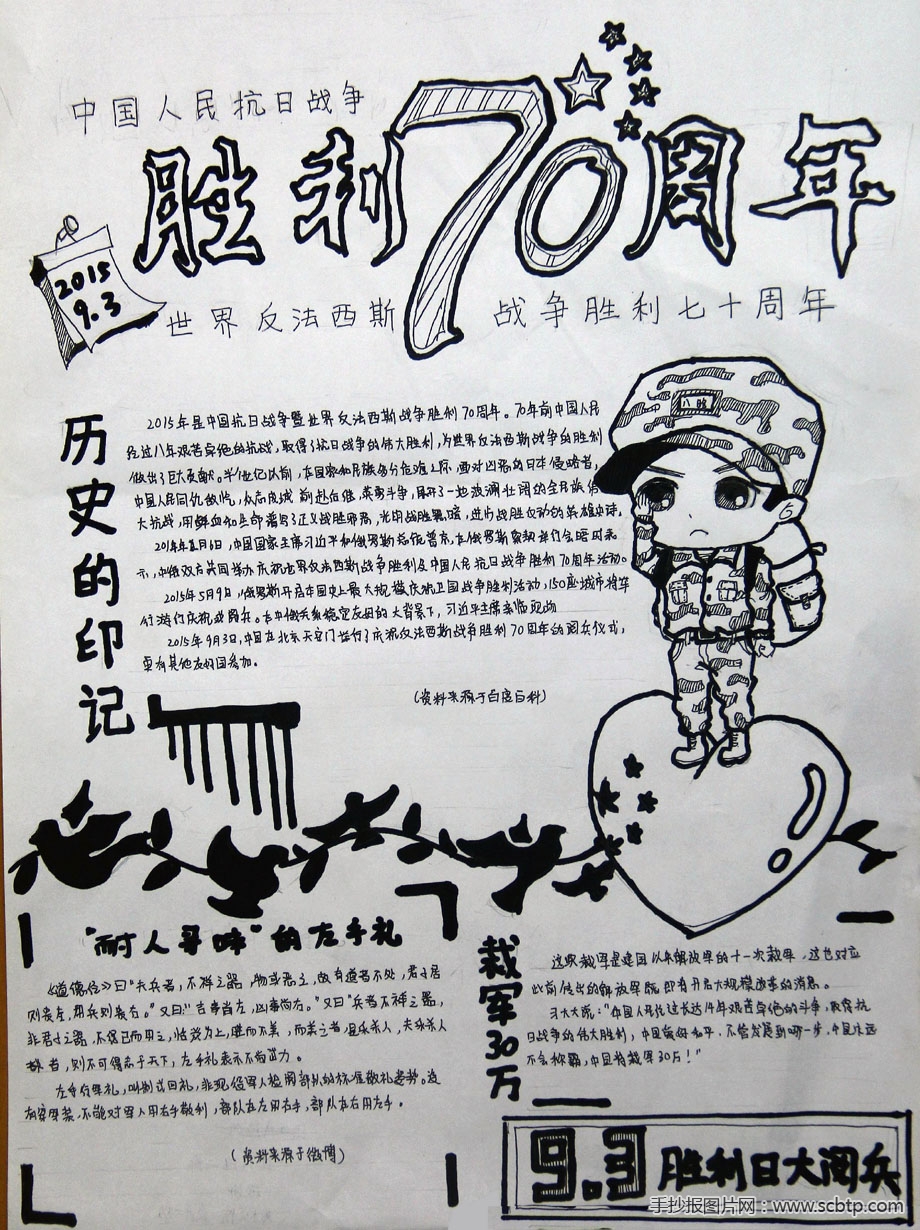 中国人民抗日战争
胜利70周年
2015
9.3
世界反法西斯战争胜利七十周年
八路
历史的印记
2015年是中国抗日战争暨世界反法西斯战争胜利70周年。70年前中国人民
经过八年艰苦卓绝的抗战，取得了抗日战争的伟大胜利，为世界反法西斯战争的胜利
做出了巨大贡献。半个世纪以前，在国家和民族多分危难之际，面对凶恶的日本侵略者，
中国人民同仇敌忾，众志成城，前赴后继，英勇斗争，展开了一场波澜壮阔的全民族伟
大抗战，用鲜血和生命谱写了正义战胜邪恶，光明战胜黑暗，进步战胜反动的英雄史诗。
中国国家主席习近平和俄罗斯总统普京，在俄罗斯索契举行会晤时表
示，中俄双方共同举办庆祝世界反法西斯战争胜利及中国人民抗日战争胜利70周年活动。
2015年5月9日，俄罗斯开启本国史上最大规模庆祝卫国战争胜利活动，150座城市将举
行游行庆祝或阅兵。在中俄关系稳定友好的大背景下，习近平主席亲临现场
2015年9月3日，中国在北京天安门举行了庆祝反法西斯战争胜利70周年的阅兵仪式，
更有其他友好国参加。
(资料来源于百度百科)
"耐人寻味"的左手礼
《道德经》曰"夫兵者，不祥之器，物或恶之，故有道者不处，君子居
则贵左，用兵则贵右。"又曰："吉事尚左，凶事尚右。"又曰"兵者不祥之器，
非君子之器，不得已而用之，恬淡为上，胜而不美，而美之者，是乐杀人，夫乐杀人
者，则不可得志于天下，左手礼表示不尚武力。
左手行军礼，叫制式回礼，非现役军人检阅部队的标准敬礼姿势。没
有穿军装，不能对军人用右手敬利，部队在左用右手，部队在右用左手。
(资料来源于微博)
裁军30万
这次裁军是建国以来解放军的十一次裁军，这也对应
此前传出的解放军既即有开启大规模改革的消息。
习大大说："中国人民过长达14年艰苦卓绝的斗争，取得抗
日战争的伟大胜利，中国爱好和平，不管发展到哪一步，中国永远
不会称霸，中国将裁军30万！"
9.3胜利日大阅兵
手抄报图片网：www.scbtp.com